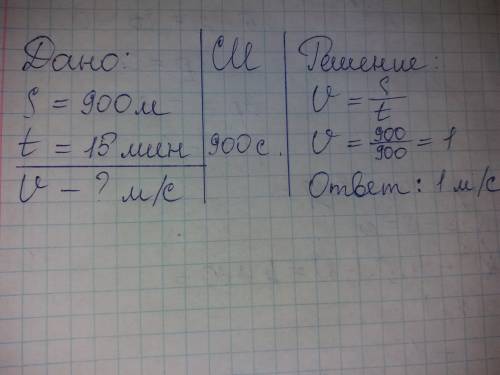 Дано:
S = 900м
t = 15 мин
V - ? м/с
СИ
900с.
Решение:
V = S/t
V = 900/900 = 1
Ответ: 1 м/с